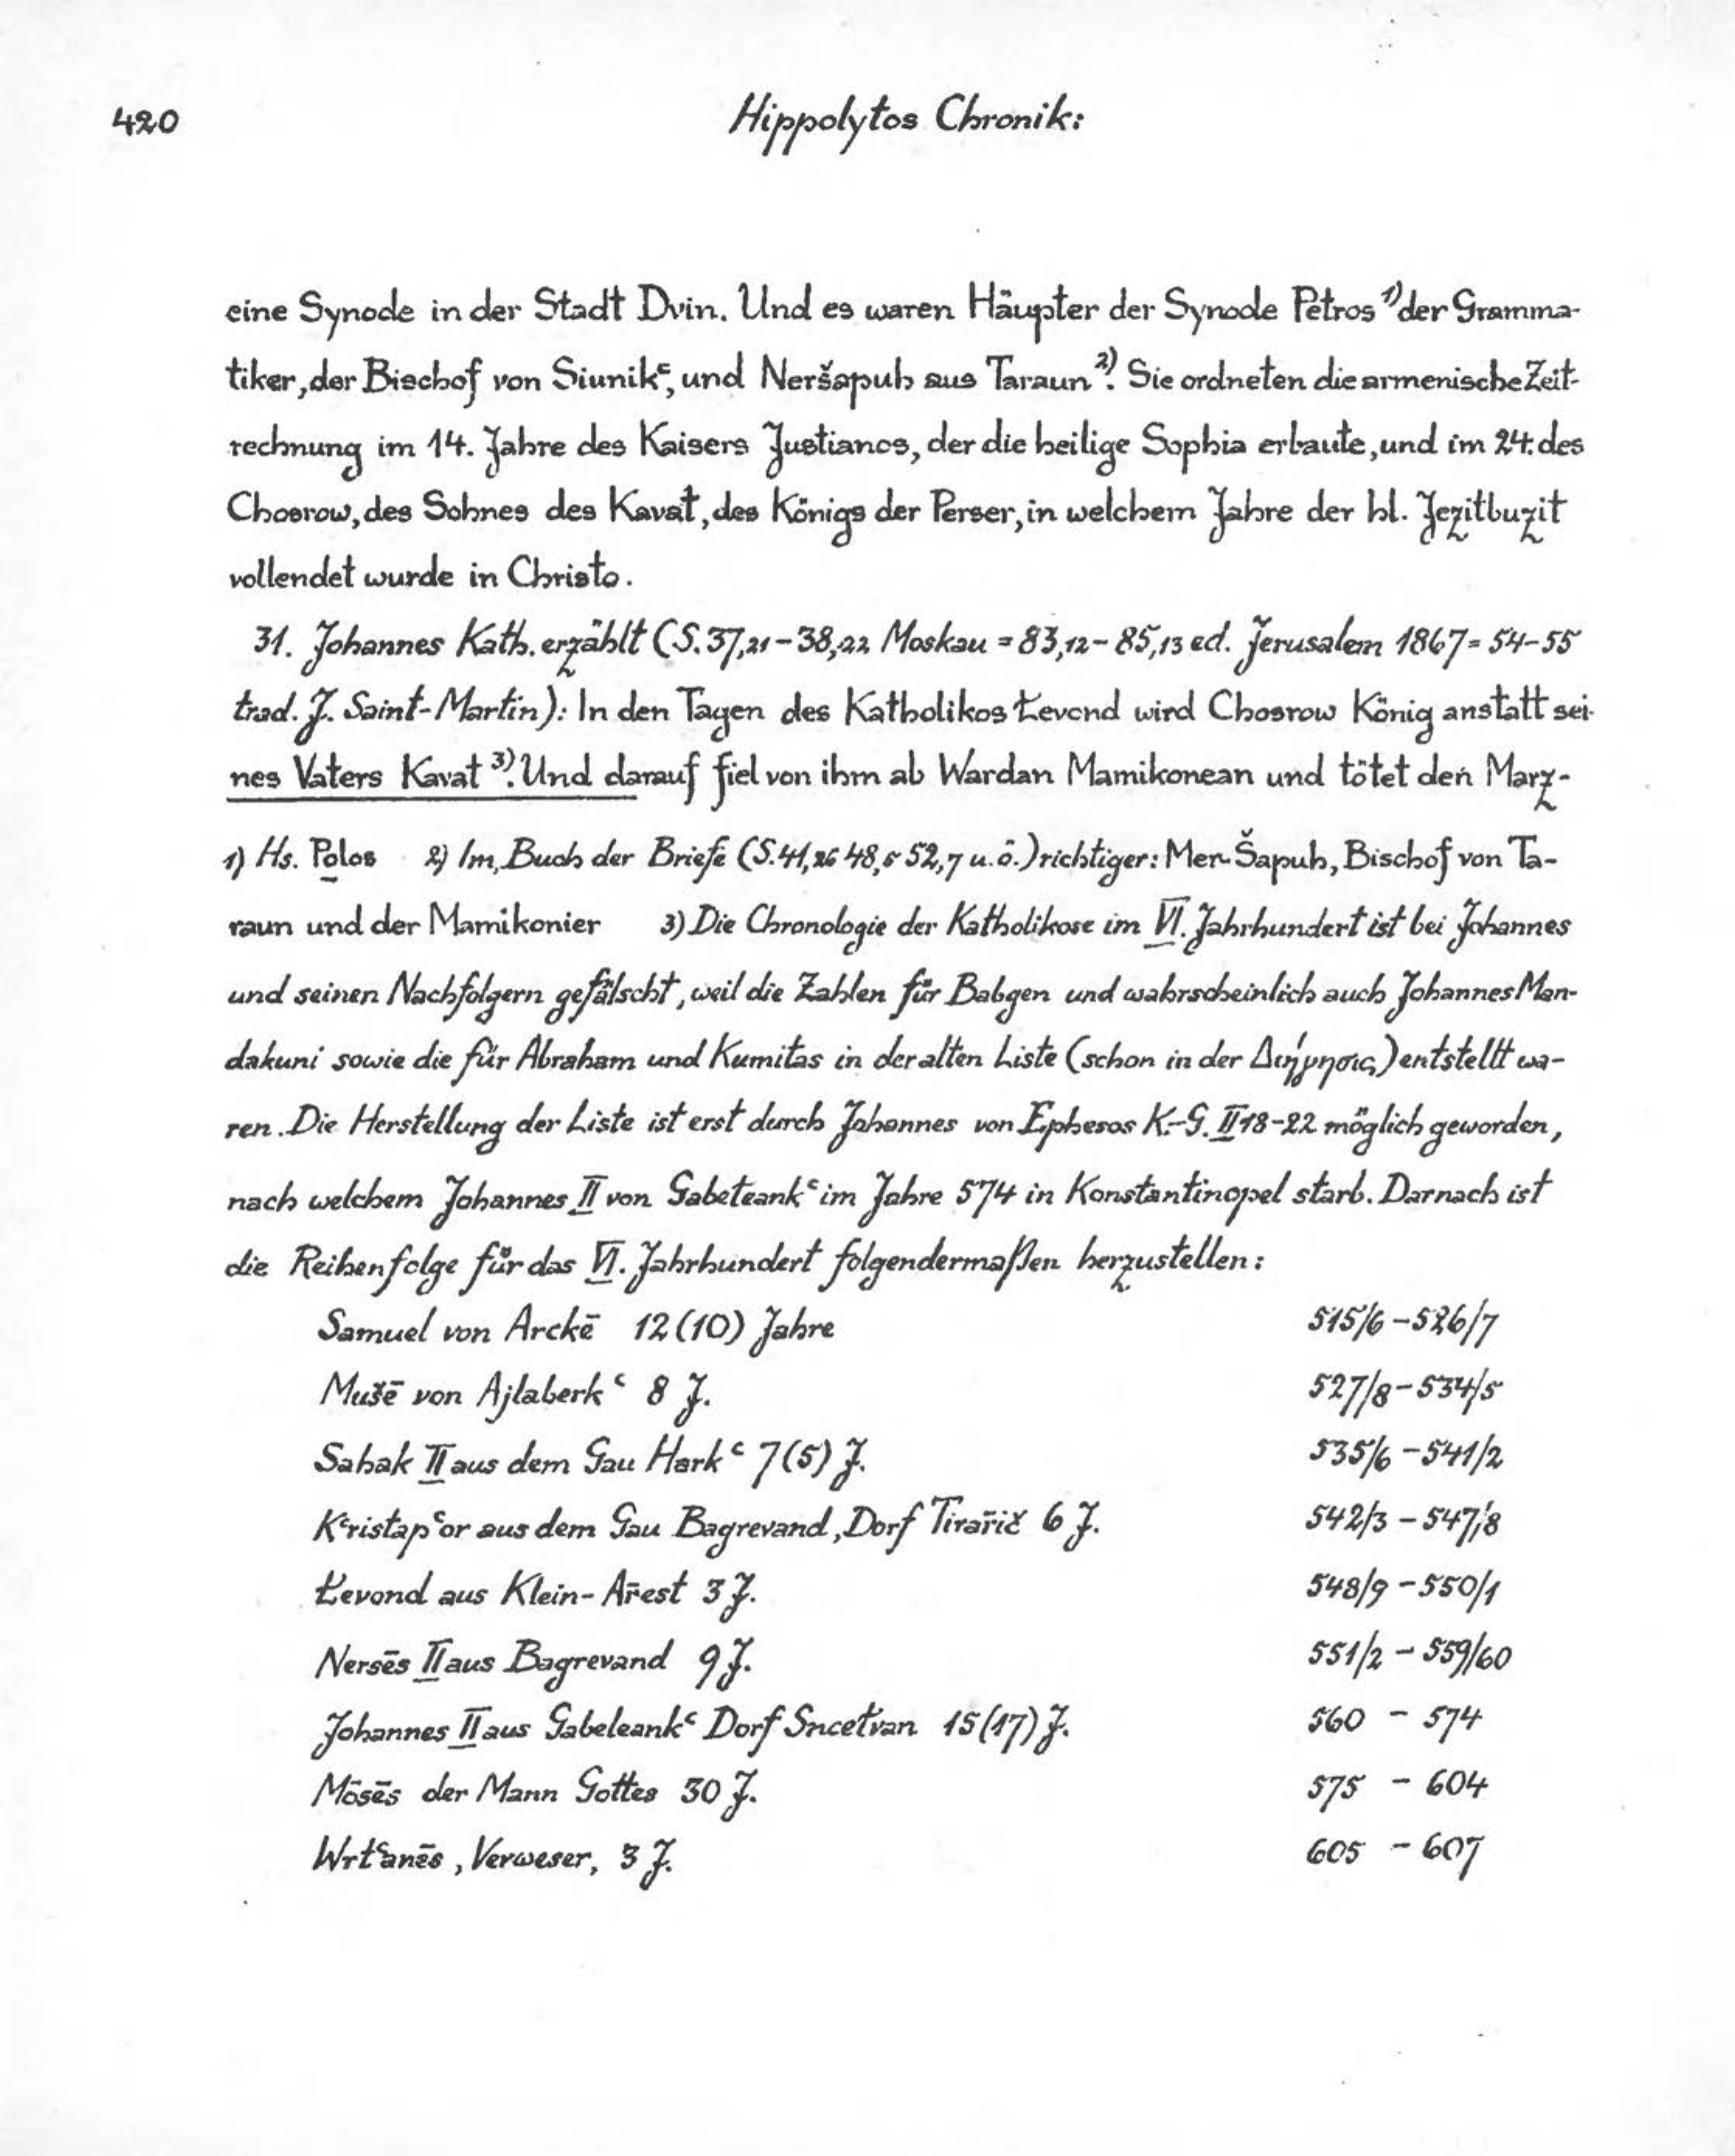 420
Hippolytos Chronik:
eine Synode in der Stadt Dvin. Und es waren Häupter der Synode Petros ¹⁾ der Gramma-
tiker, der Bischof von Siunikʿ, und Neršapuh aus Taraun ²⁾. Sie ordneten die armenische Zeit-
rechnung im 14. Jahre des Kaisers Justianos, der die heilige Sophia erbaute, und im 24. des
Chosrow, des Sohnes des Kavat, des Königs der Perser, in welchem Jahre der hl. Jezitbuzit
vollendet wurde in Christo.
31. Johannes Kath. erzählt (S. 37,21 - 38,22 Moskau = 83,12 - 85,13 ed. Jerusalem 1867 = 54-55
trad. J. Saint-Martin): In den Tagen des Katholikos Łevond wird Chosrow König anstatt sei-
nes Vaters Kavat ³⁾. Und darauf fiel von ihm ab Wardan Mamikonean und tötet den Marz-
1) Hs. Polos 2) Im „Buch der Briefe (S. 41,26 48,5 52,7 u. ö.) richtiger: Mer-Šapuh, Bischof von Ta-
raun und der Mamikonier 3) Die Chronologie der Katholikose im VI. Jahrhundert ist bei Johannes
und seinen Nachfolgern gefälscht, weil die Zahlen für Babgen und wahrscheinlich auch Johannes Man-
dakuni sowie die für Abraham und Kumitas in der alten Liste (schon in der Διήγησις) entstellt wa-
ren. Die Herstellung der Liste ist erst durch Johannes von Ephesos K.-G. II 18-22 möglich geworden,
nach welchem Johannes II von Gabełeankʿ im Jahre 574 in Konstantinopel starb. Darnach ist
die Reihenfolge für das VI. Jahrhundert folgendermaßen herzustellen:
Samuel von Arckē 12 (10) Jahre 515/6 - 526/7
Mušē von Ajlaberkʿ 8 J. 527/8 - 534/5
Sahak II aus dem Gau Harkʿ 7 (5) J. 535/6 - 541/2
Kʿristapʿor aus dem Gau Bagrevand, Dorf Tirar̄ič 6 J. 542/3 - 547/8
Łevond aus Klein-Ar̄est 3 J. 548/9 - 550/1
Nersēs II aus Bagrevand 9 J. 551/2 - 559/60
Johannes II aus Gabeleankʿ Dorf Sncełvan 15 (17) J. 560 - 574
Mōsēs der Mann Gottes 30 J. 575 - 604
Wrtʿanēs, Verweser, 3 J. 605 - 607